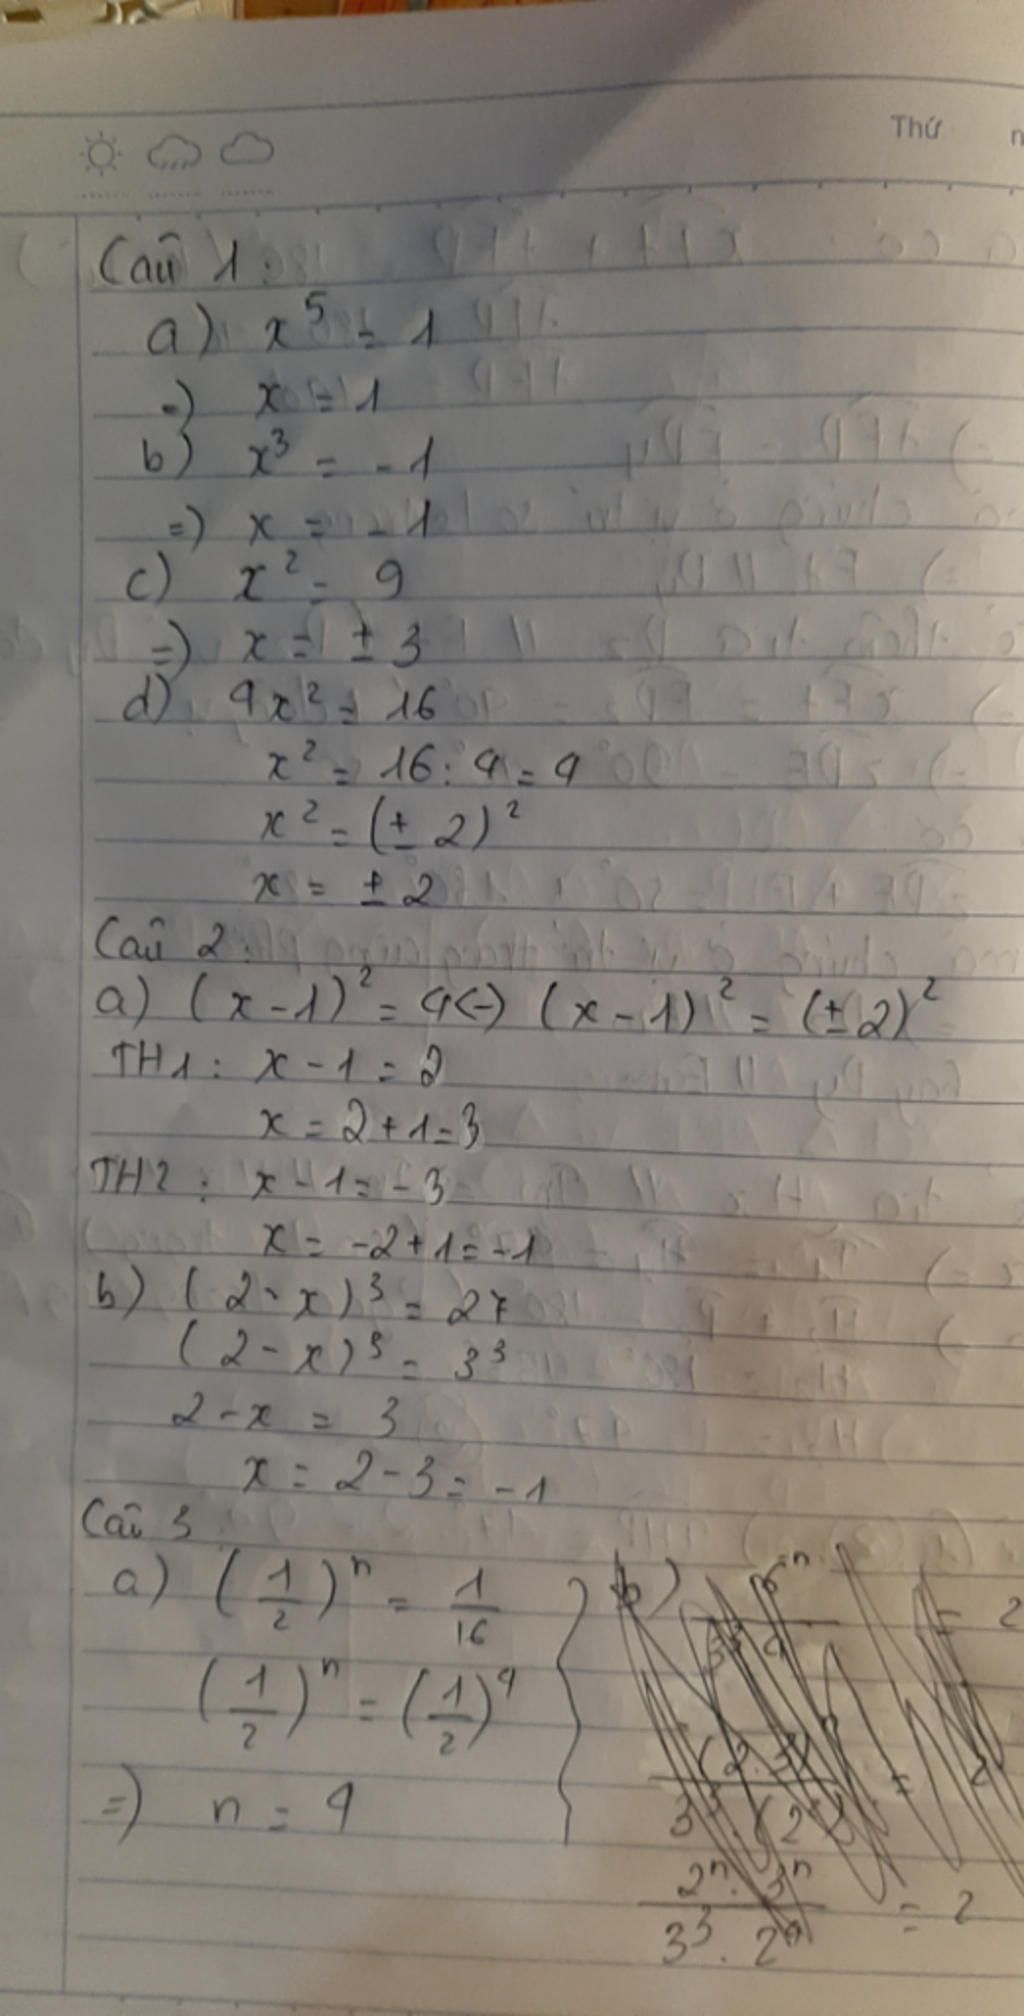 Thứ
Câu 1:
a) x⁵ = 1
=) x = 1
b) x³ = -1
=) x = -1
c) x² = 9
=) x = ± 3
d) 4x² = 16
x² = 16 : 4 = 4
x² = (± 2)²
x = ± 2
Câu 2:
a) (x - 1)² = 4 <=) (x - 1)² = (± 2)²
TH1 : x - 1 = 2
x = 2 + 1 = 3
TH2 : x - 1 = - 3
x = -2 + 1 = -1
b) (2 - x)³ = 27
(2 - x)³ = 3³
2 - x = 3
x = 2 - 3 = -1
Câu 3
a) (1/2)ⁿ = 1/16
(1/2)ⁿ = (1/2)⁴
=) n = 4